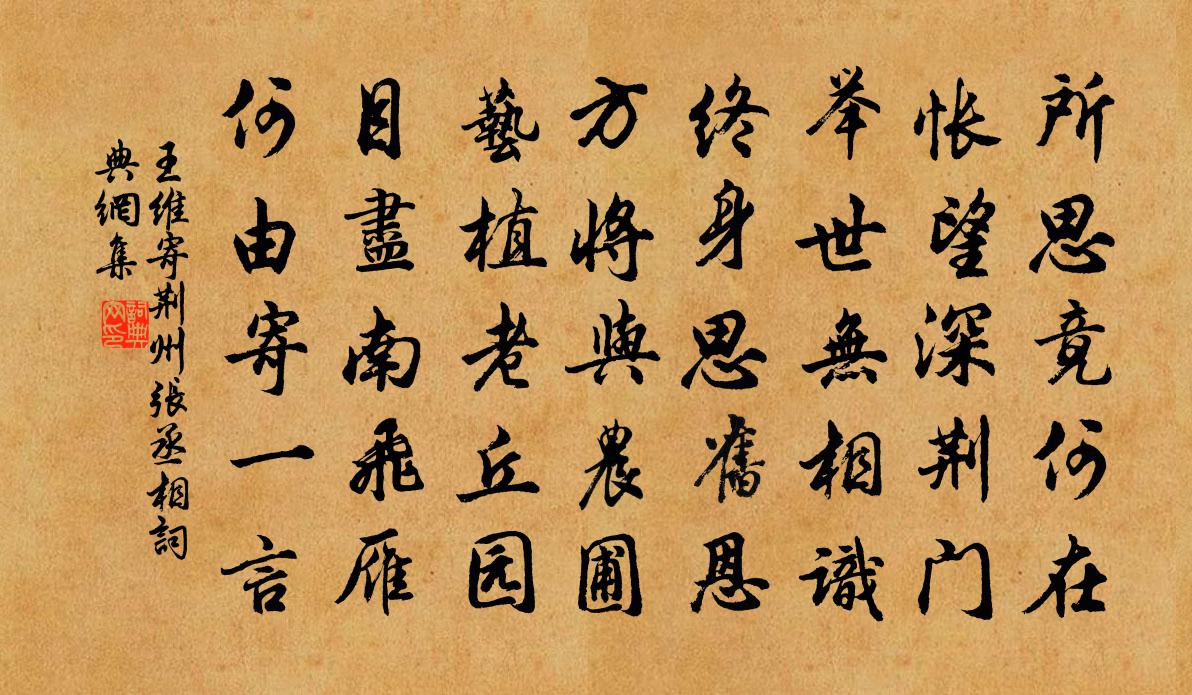 所思竟何在
怅望深荆门
举世無相識
终身思舊恩
方将與農圃
藝植老丘园
目盡南飛雁
何由寄一言
王維寄荆州張丞相詞
典網集
詞典
网印